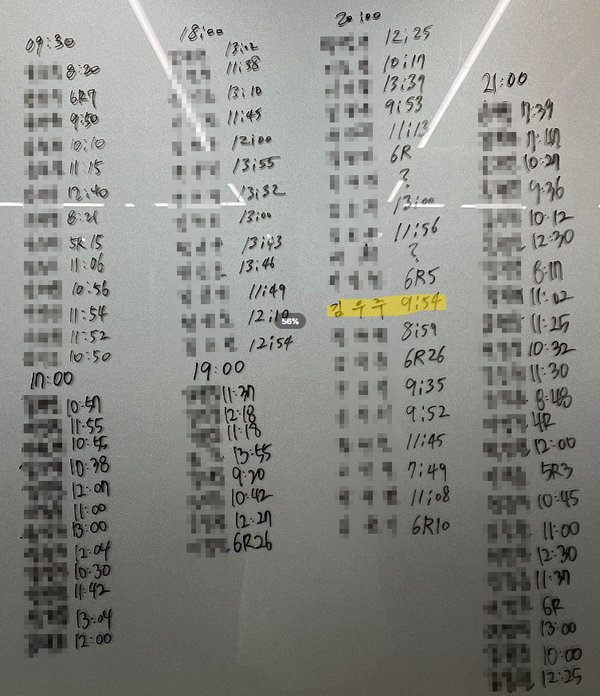 09:30
8:20
6R7
9:50
10:10
11:15
12:40
8:21
5R 15
11:06
10:56
11:54
11:52
10:50
17:00
10:57
11:55
10:55
10:38
12:07
11:00
13:00
12:04
10:30
11:42
13:04
12:00
18:00
13:02
11:38
13:10
11:45
12:00
13:55
13:32
13:00
13:43
13:46
11:49
12:54
56%
19:00
11:37
12:18
11:18
13:55
9:20
10:42
12:27
6R26
20:00
12:25
10:17
13:39
9:53
11:13
6R
?
13:00
11:56
?
6R5
김우주 9:54
8:59
6R26
9:35
9:52
11:45
7:49
11:08
6R10
21:00
7:39
7:47
10:27
9:36
10:12
12:30
8:17
11:02
11:25
10:32
11:30
8:48
4R
12:00
5R3
10:45
11:00
12:30
11:37
6R
13:00
10:00
12:25